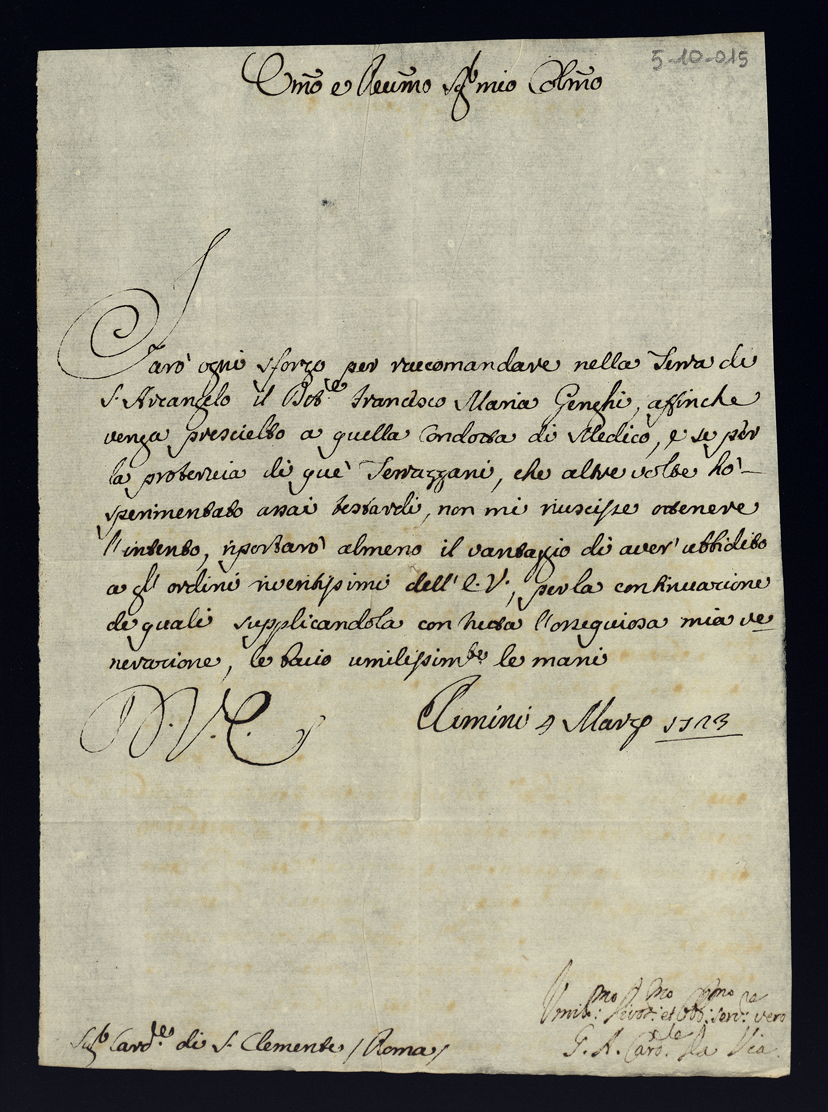 5-10-015
Em̃o e Reum̃o Sigr mio Colm̃o
Farò ogni sforzo per raccomandare nella Terra di
S. Arcangelo il Dotre Francesco Maria Genghi, affinche
venga prescielto a quella Condotta di Medico, e se per
la protervia di que' Terrazzani, che altre volte hò
sperimentato assai testardi, non mi riuscisse ottenere
l'intento, riportarò almeno il vantagio di aver' ubbidito
a gl' ordini riveritissimi dell' E. V., per la continuazione
de quali supplicandola con tutta l'ossequiosa mia ve-
nerazione, le bacio umilissimte le mani
D. V. E.
Rimini 4 Marzo 1723
Sigr Cardle di S. Clemente /Roma/
Umilmo Divotmo et Obbmo servre vero
G. A. Cardle Da Via